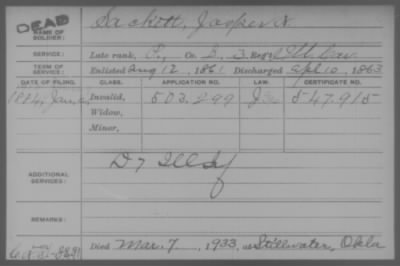 DEAD
NAME OF SOLDIER: Sackett, Jasper N.
SERVICE: Late rank, P., Co. B, 3 Reg't Ill Cav.
TERM OF SERVICE: Enlisted Aug 12, 1861. Discharged Apl 10, 1863
DATE OF FILING. CLASS. APPLICATION NO. LAW. CERTIFICATE NO.
Invalid, 503.299 547.915
Widow,
Minor,
ADDITIONAL SERVICES: D 7 Ill
REMARKS:
Died Mar. 7, 1933, at Stillwater, Okla